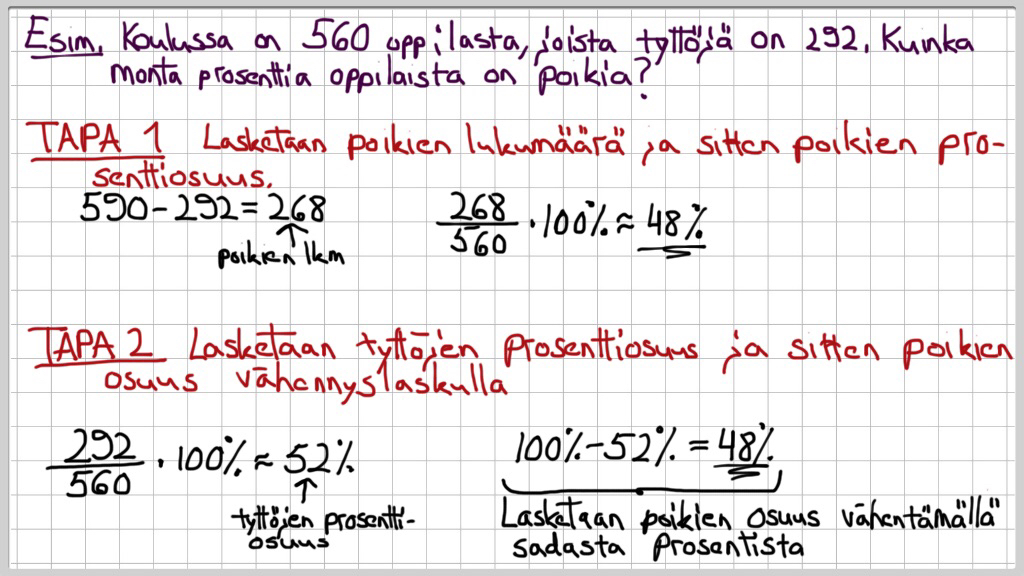 Esim. Koulussa on 560 oppilasta, joista tyttöjä on 292. Kuinka
monta prosenttia oppilaista on poikia?
TAPA 1 Lasketaan poikien lukumäärä ja sitten poikien pro-
senttiosuus.
590-292=268
poikien lkm
268/560 · 100% ≈ 48%
TAPA 2 Lasketaan tyttöjen prosenttiosuus ja sitten poikien
osuus vähennyslaskulla
292/560 · 100% ≈ 52%
tyttöjen prosentti-
osuus
100%-52% = 48%
Lasketaan poikien osuus vähentämällä
sadasta prosentista